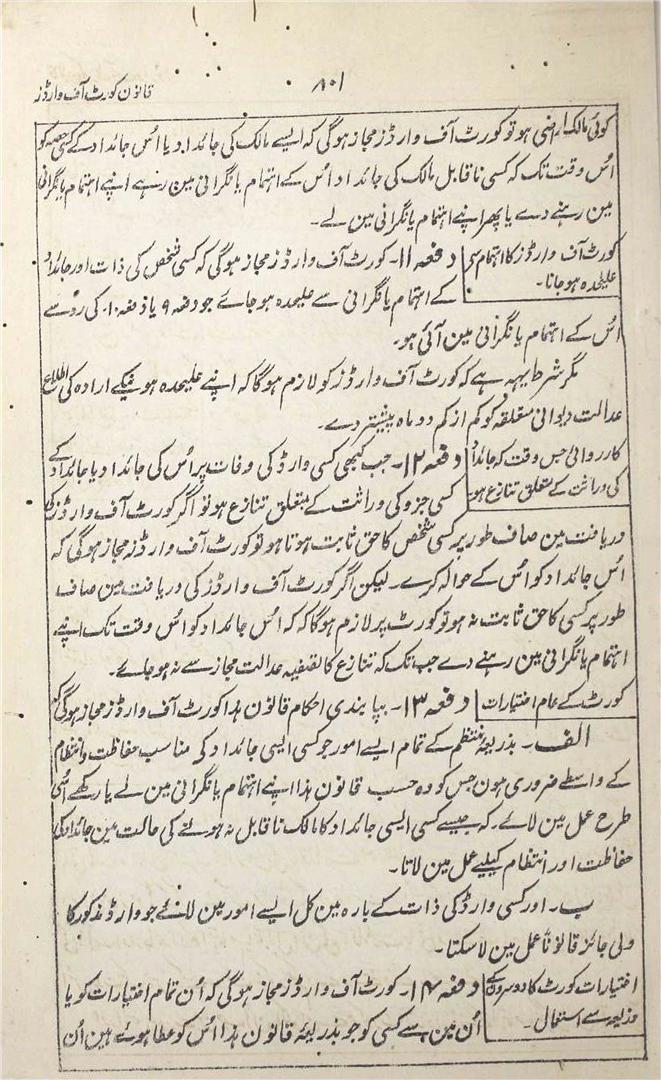 ۸۰۱
قانون کورٹ آف وارڈز
کوئی مالک راضی ہو تو کورٹ آف وارڈز مجاز ہوگی کہ ایسے مالک کی جائداد یا اُس جائداد کے کسی حصہ کو
اُس وقت تک کہ کسی ناقابل مالک کی جائداد اس کے اہتمام یا نگرانی مین رہے اپنے اہتمام یا نگرانی
مین رہنے دے یا پھر اپنے اہتمام یا نگرانی مین لے۔
کورٹ آف وارڈز کا اہتمام سے
علیحدہ ہوجانا۔
دفعہ ۱۱۔ کورٹ آف وارڈز مجاز ہوگی کہ کسی شخص کی ذات اور جائداد
کے اہتمام یا نگرانی سے علیحدہ ہوجائے جو دفعہ ۹ یا دفعہ ۱۰ کی روسے
اُس کے اہتمام یا نگرانی مین آئی ہو۔
مگر شرط یہہ ہے کہ کورٹ آف وارڈز کو لازم ہوگا کہ اپنے علیحدہ ہونیکے ارادہ کی اطلاع
عدالت دیوانی متعلقہ کو کم از کم دو ماہ پیشتر دے۔
کارروائی جس وقت کہ جائداد
کی وراثت کے متعلق تنازع ہو
دفعہ ۱۲۔ جب کبھی کسی وارڈ کی وفات پر اُس کی جائداد یا جائداد کے
کسی جزو کی وراثت کے متعلق تنازع ہو تو اگر کورٹ آف وارڈز کی
دریافت مین صاف طور پر کسی شخص کا حق ثابت ہوتا ہو تو کورٹ آف وارڈز مجاز ہوگی کہ
اُس جائداد کو اُس کے حوالہ کرے۔ لیکن اگر کورٹ آف وارڈز کی دریافت مین صاف
طور پر کسی کا حق ثابت نہ ہو تو کورٹ پر لازم ہوگا کہ کہ اُس جائداد کو اُس وقت تک اپنے
اہتمام یا نگرانی مین رہنے دے جب تک کہ تنازع کا تصفیہ عدالت مجاز سے نہ ہوجائے۔
کورٹ کے عام اختیارات
دفعہ ۱۳۔ بپابندی احکام قانون ہذا کورٹ آف وارڈز مجاز ہوگی کہ
الف۔ بذریعہ منتظم کے تمام ایسے امور جو کسی ایسی جائداد کی مناسب حفاظت و انتظام
کے واسطے ضروری ہون جس کو وہ حسب قانون ہذا اپنے اہتمام یا نگرانی مین لے یا رکھے اُسی
طرح عمل مین لائے۔ کہ جیسے کسی ایسی جائداد کا مالک ناقابل نہ ہونے کی حالت مین جائداد کی
حفاظت اور انتظام کیلیے عمل مین لاتا۔
ب۔ اور کسی وارڈ کی ذات کے بارہ مین کل ایسے امور مین لائے جو وارڈ مذکور کا
ولی جائز قانوناً عمل مین لاسکتا۔
اختیارات کورٹ کا دوسرون کے
ذریعہ سے استعمال۔
دفعہ ۱۴۔ کورٹ آف وارڈز مجاز ہوگی کہ اُن تمام اختیارات کو یا
اُن مین سے کسی کو جو بذریعہ قانون ہذا اُس کو عطا ہوئے ہین اُن